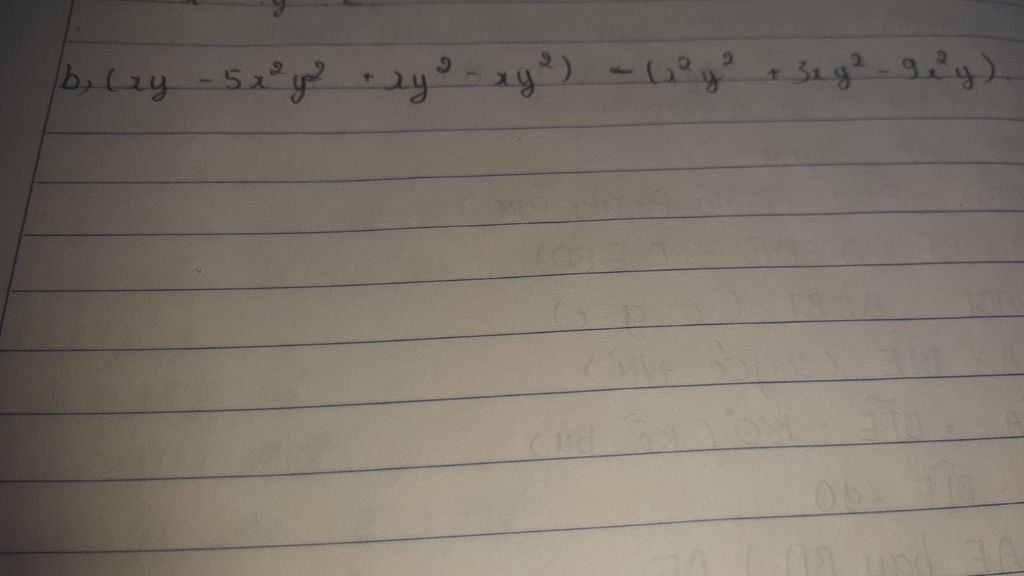 b, (xy - 5x²y² + xy² - xy²) - (x²y² + 3xy² - 9x²y).